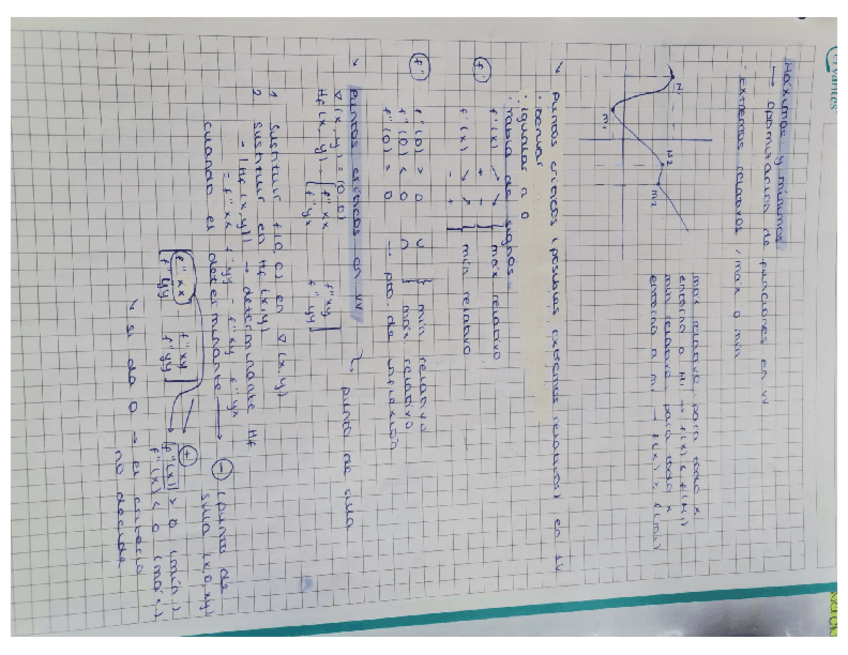 Cervantes
Máximos y mínimos
→ optimización de funciones en VV
· extremos relativos / max o min
M1
M2
m1
m2
max relativo: para todo x
entorno a M1 → f(x) ≤ f(M1)
min relativo: para todo x
entorno a m1 → f(x) ≥ f(m1)
puntos críticos (posibles extremos relativos) en 1V
· Derivar
· igualar a 0
· Tabla de signos
f'
f'(x) + - } max relativo
f'(x) - + } min relativo
f''
f''(0) > 0 ∪ } min relativo
f''(0) < 0 ∩ } max relativo
f''(0) = 0 → pto. de inflexión
puntos críticos en VV
punto de silla
∇(x,y) = (0,0)
Hf(x,y) = [f''xx f''xy
f''yx f''yy]
1 Sustituir f(0,0) en ∇(x,y)
2 Sustituir en Hf(x,y)
- |Hf(x,y)| → determinante Hf
= f''xx · f''yy - f''xy · f''yx
cuando el determinante → - (punto de
silla (x,0,xy)
f''xx f''xy + f''(x) > 0 (min.)
f''yy f''yy f''(x) < 0 (max.)
si da 0 → el criterio
no decide